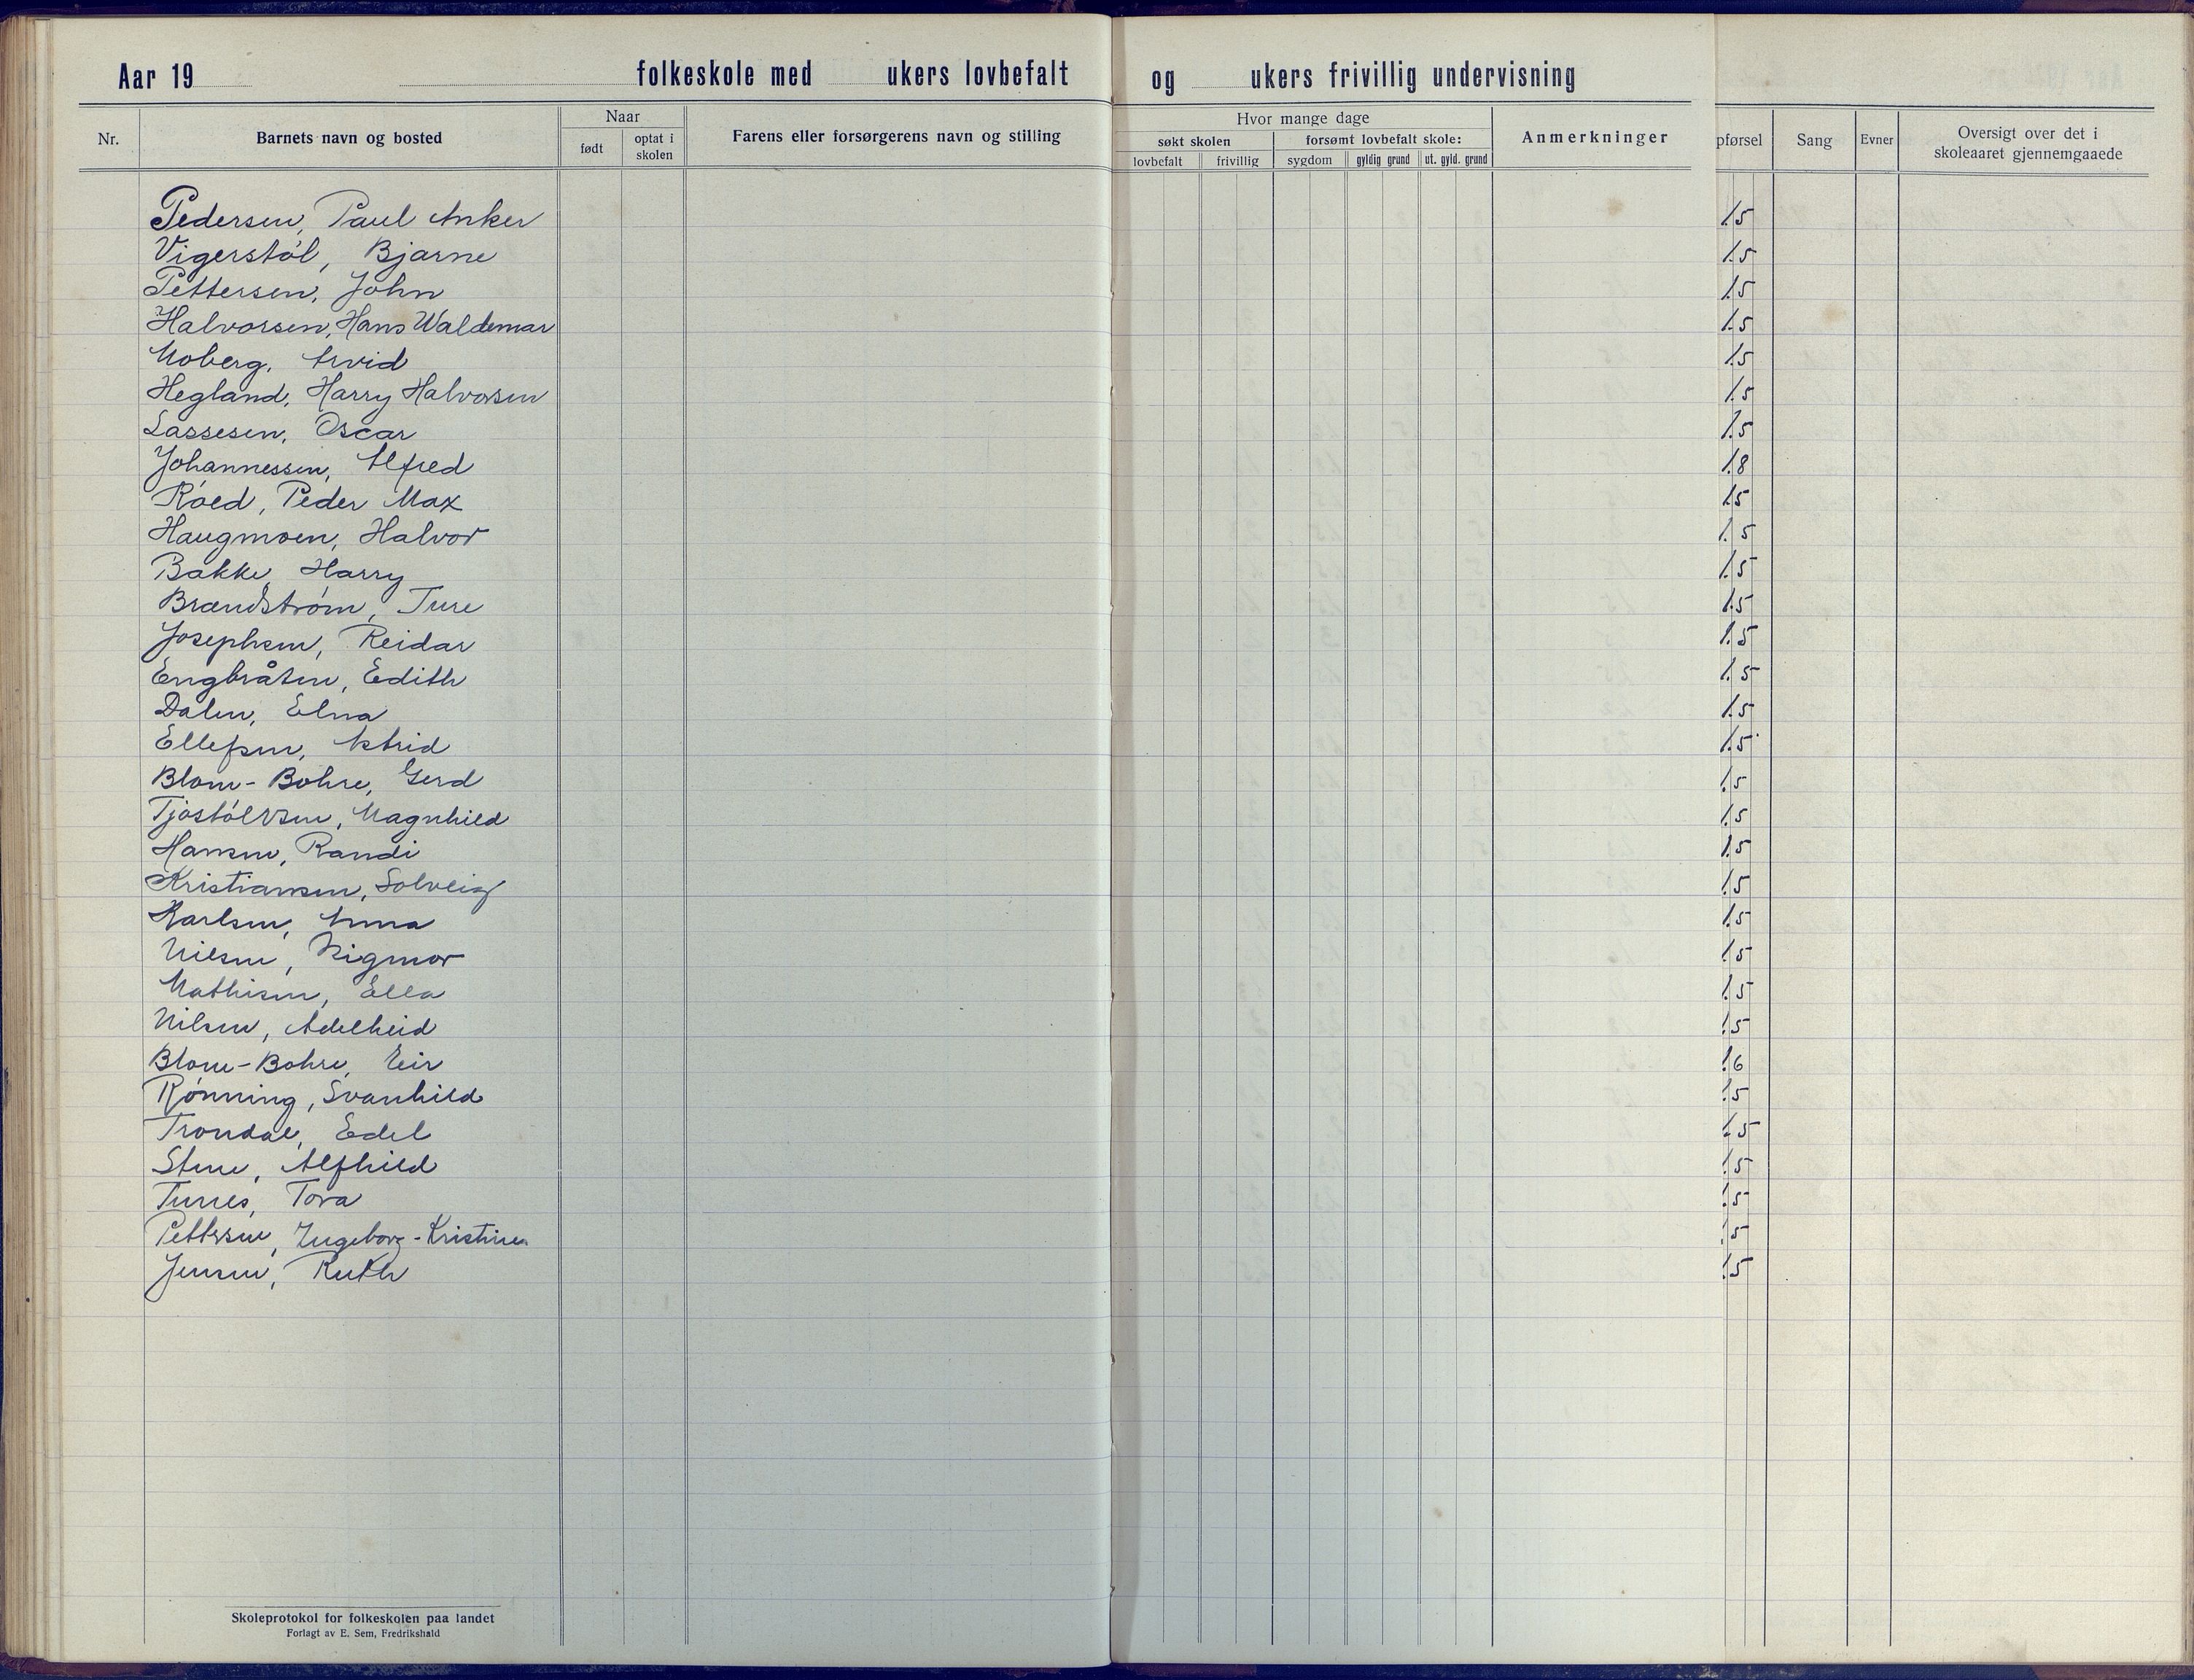 Aar 19 folkeskole med ukers lovbefalt og ukers frivillig undervisning
Nr.
Barnets navn og bosted
Naar
født
optat i skolen
Farens eller forsørgerens navn og stilling
Hvor mange dage
søkt skolen
forsømt lovbefalt skole:
lovbefalt
frivillig
sygdom
gyldig grund
ut. gyld. grund
Anmerkninger
pførsel
Sang
Evner
Oversigt over det i
skoleaaret gjennemgaaede
Pedersen, Paul Anker 1.5
Vigerstøl, Bjarne 1.5
Pettersen, John 1.5
Halvorsen, Hans Waldemar 1.5
Moberg, Arvid 1.5
Hegland, Harry Halvorsen 1.5
Lassesen, Oscar 1.5
Johannessen, Alfred 1.8
Røed, Peder Max 1.5
Haugmoen, Halvor 1.5
Bakke, Harry 1.5
Brændstrøm, Ture 1.5
Josephsen, Reidar 1.5
Engbråten, Edith 1.5
Dalen, Elna 1.5
Ellefsen, Astrid 1.5
Blom-Bohre, Gerd 1.5
Tjøstølvsen, Magnhild 1.5
Hansen, Randi 1.5
Kristiansen, Solveig 1.5
Karlsen, Anna 1.5
Nilsen, Rigmor 1.5
Mathisen, Ella 1.5
Nilsen, Adelheid 1.5
Blom-Bohre, Eir 1.6
Rønning, Svanhild 1.5
Trondal, Edel 1.5
Stene, Alfhild 1.5
Tunes, Tora 1.5
Pettersen, Ingeborg-Kristine 1.5
Jensen, Ruth 1.5
Skoleprotokol for folkeskolen paa landet
Forlagt av E. Sem, Fredrikshald